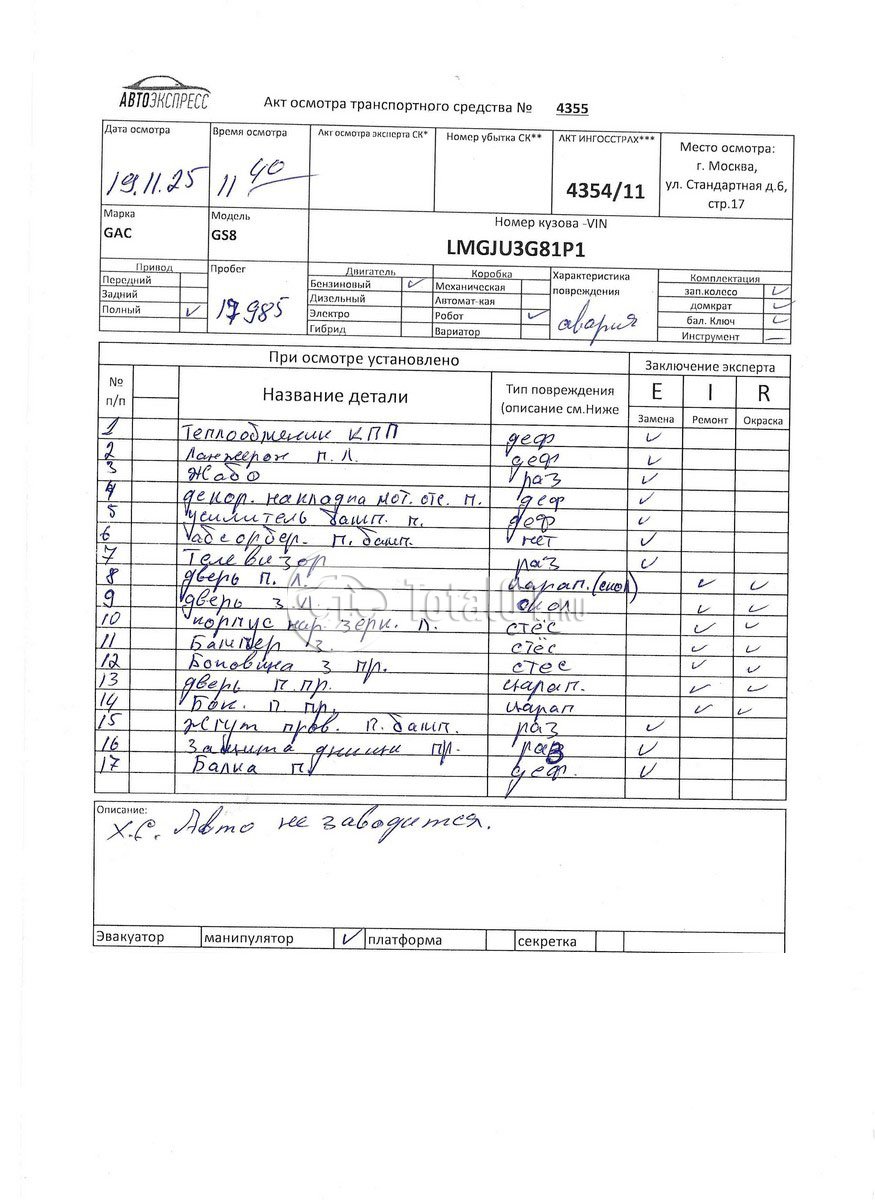 АВТОЭКСПРЕСС
Акт осмотра транспортного средства № 4355
Дата осмотра Время осмотра Акт осмотра эксперта СК* Номер убытка СК** АКТ ИНГОССТРАХ*** Место осмотра:
г. Москва,
19.11.25 11 40 4354/11 ул. Стандартная д.6,
стр.17
Марка Модель Номер кузова -VIN
GAC GS8 LMGJU3G81P1
Привод Пробег Двигатель Коробка Характеристика повреждения Комплектация
Передний Бензиновый ✓ Механическая зап.колесо ✓
Задний Дизельный Автомат-кая домкрат ✓
Полный ✓ 17985 Электро Робот ✓ авария бал. Ключ ✓
Гибрид Вариатор Инструмент —
При осмотре установлено Заключение эксперта
№ п/п Название детали Тип повреждения (описание см.Ниже E I R
Замена Ремонт Окраска
1 Теплообменник КПП деф ✓
2 Ланжерон п. л. деф ✓
3 Жабо раз ✓
4 декор. накладка мот. отс. п. деф ✓
5 усилитель бамп. п. деф ✓
6 абсорбер. п. бамп. нет ✓
7 Телевизор раз ✓
8 дверь п. л. царап. (скол) ✓ ✓
9 дверь з л скол ✓ ✓
10 корпус нар. зерк. л. стёс ✓ ✓
11 Бампер з. стёс ✓ ✓
12 Боковина з пр. стес ✓ ✓
13 дверь п. пр. царап. ✓ ✓
14 Бок. п. пр. царап ✓ ✓
15 Жгут пров. п. бамп. раз ✓
16 Защита днища пр. раз ✓
17 Балка п. деф. ✓
Описание:
Х.С. Авто не заводится.
Эвакуатор манипулятор ✓ платформа секретка
Total01.RU